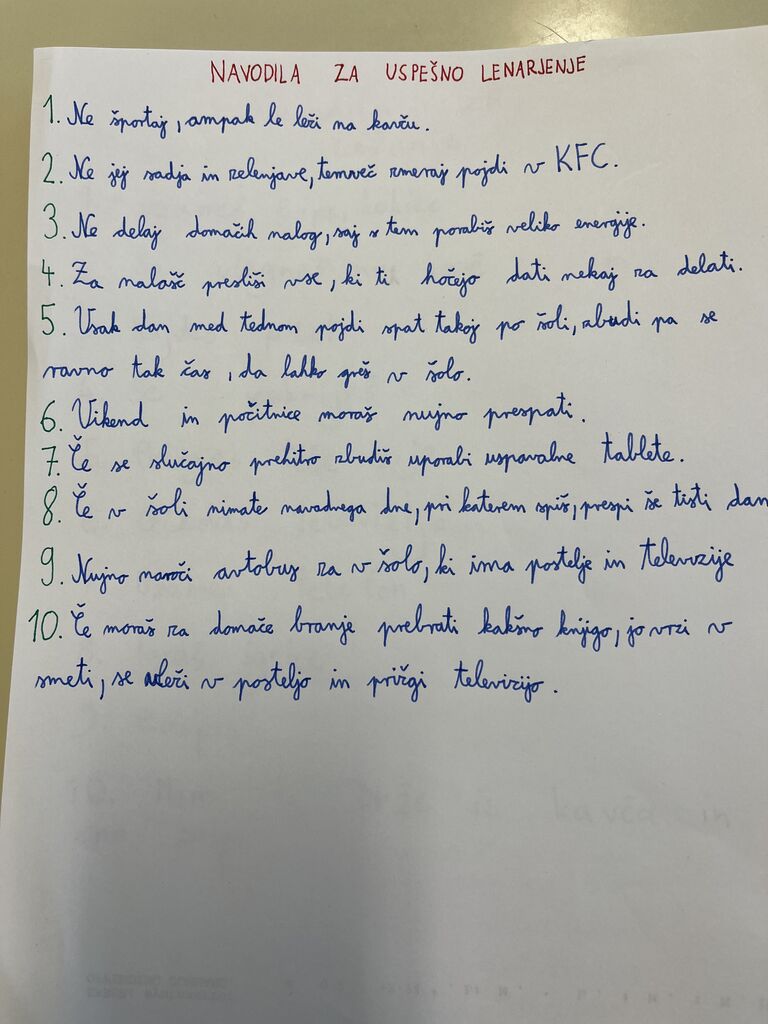 NAVODILA ZA USPEŠNO LENARJENJE
1. Ne športaj, ampak le leži na kavču.
2. Ne jej sadja in zelenjave, temveč zmeraj pojdi v KFC.
3. Ne delaj domačih nalog, saj s tem porabiš veliko energije.
4. Za nalašč presliši vse, ki ti hočejo dati nekaj za delati.
5. Vsak dan med tednom pojdi spat takoj po šoli, zbudi pa se
ravno tak čas, da lahko greš v šolo.
6. Vikend in počitnice moraš nujno prespati.
7. Če se slučajno prehitro zbudiš uporabi uspavalne tablete.
8. Če v šoli nimate navadnega dne, pri katerem spiš, prespi še tisti dan
9. Nujno naroči avtobus za v šolo, ki ima postelje in televizije
10. Če moraš za domače branje prebrati kakšno knjigo, jo vrzi v
smeti, se uleži v posteljo in prižgi televizijo.